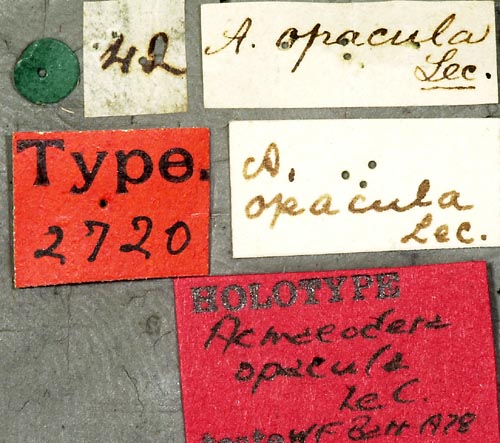 42
A. opacula
Lec.
Type.
2720
A.
opacula
Lec.
HOLOTYPE
Acmaeodera
opacula
LeC.
teste W F Barr 1978